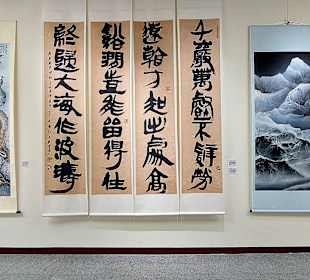 千巖萬壑不辭勞
遠看方知出處高
谿澗豈能留得住
終歸大海作波濤